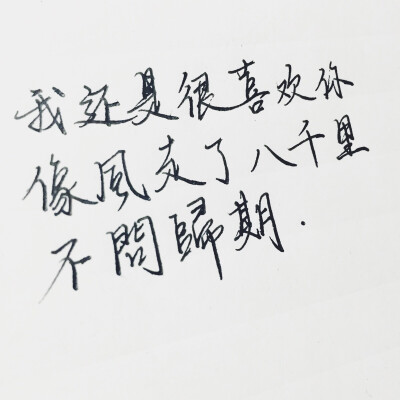 我还是很喜欢你
像風走了八千里
不問歸期.